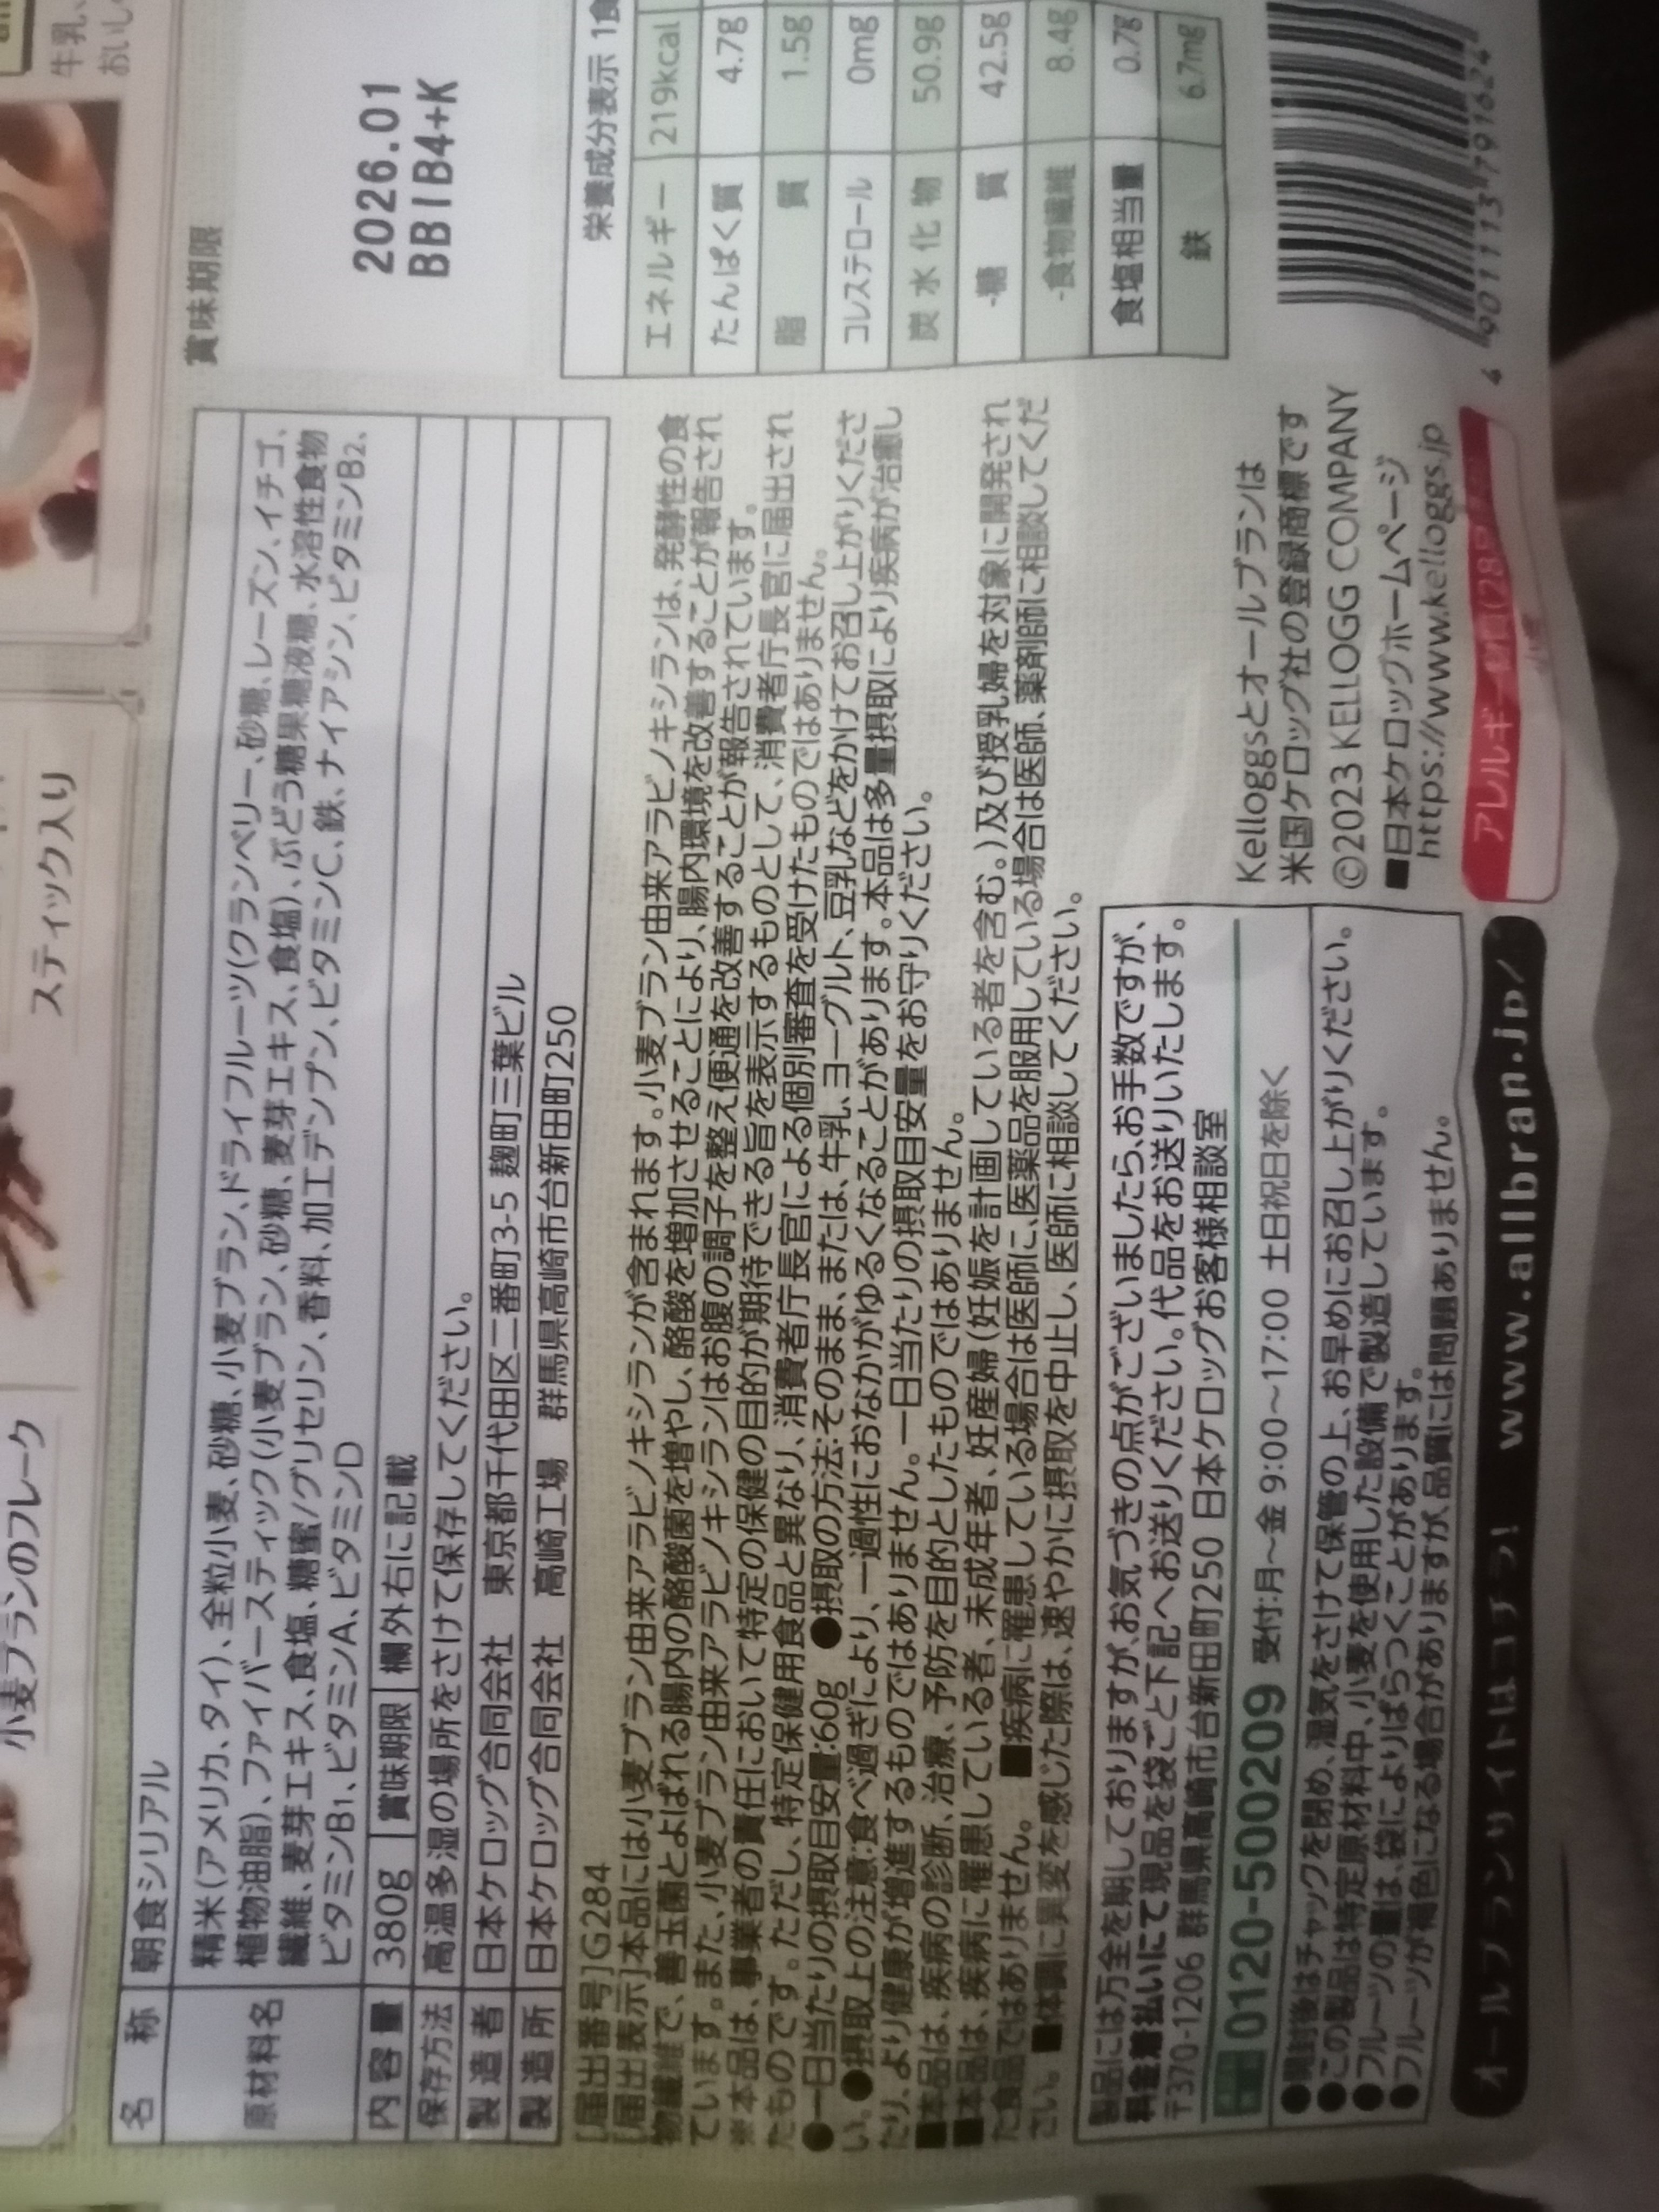 小麦ブランのフレーク
スティック入り
牛乳、
おいし
名 称 朝食シリアル
原材料名 精米(アメリカ、タイ)、全粒小麦、砂糖、小麦ブラン、ドライフルーツ(クランベリー、砂糖、レーズン、イチゴ、
植物油脂)、ファイバースティック(小麦ブラン、砂糖、麦芽エキス、食塩)、ぶどう糖果糖液糖、水溶性食物
繊維、麦芽エキス、食塩、糖蜜/グリセリン、香料、加工デンプン、ビタミンC、鉄、ナイアシン、ビタミンB2、
ビタミンB1、ビタミンA、ビタミンD
内容量 380g 賞味期限 欄外右に記載
保存方法 高温多湿の場所をさけて保存してください。
製造者 日本ケロッグ合同会社 東京都千代田区二番町3-5 麹町三葉ビル
製造所 日本ケロッグ合同会社 高崎工場 群馬県高崎市台新田町250
賞味期限
2026.01
BB1B4+K
[届出番号]G284
[届出表示]本品には小麦ブラン由来アラビノキシランが含まれます。小麦ブラン由来アラビノキシランは、発酵性の食
物繊維で、善玉菌とよばれる腸内の酪酸菌を増やし、酪酸を増加させることにより、腸内環境を改善することが報告され
ています。また、小麦ブラン由来アラビノキシランはお腹の調子を整え便通を改善することが報告されています。
※本品は、事業者の責任において特定の保健の目的が期待できる旨を表示するものとして、消費者庁長官に届出され
たものです。ただし、特定保健用食品と異なり、消費者庁長官による個別審査を受けたものではありません。
●一日当たりの摂取目安量:60g ●摂取の方法:そのまま、または、牛乳、ヨーグルト、豆乳などをかけてお召し上がりくださ
い。●摂取上の注意:食べ過ぎにより、一過性におなかがゆるくなることがあります。本品は多量摂取により疾病が治癒し
たり、より健康が増進するものではありません。一日当たりの摂取目安量をお守りください。
■本品は、疾病の診断、治療、予防を目的としたものではありません。
■本品は、疾病に罹患している者、未成年者、妊産婦(妊娠を計画している者を含む。)及び授乳婦を対象に開発され
た食品ではありません。 ■疾病に罹患している場合は医師に、医薬品を服用している場合は医師、薬剤師に相談してくだ
さい。 ■体調に異変を感じた際は、速やかに摂取を中止し、医師に相談してください。
栄養成分表示 1食
エネルギー 219kcal
たんぱく質 4.7g
脂 質 1.5g
コレステロール 0mg
炭水化物 50.9g
-糖 質 42.5g
-食物繊維 8.4g
食塩相当量 0.7g
鉄 6.7mg
製品には万全を期しておりますが、お気づきの点がございましたら、お手数ですが、
料金着払いにて現品を袋ごと下記へお送りください。代品をお送りいたします。
〒370-1206 群馬県高崎市台新田町250 日本ケロッグお客様相談室
0120-500209 受付:月~金 9:00~17:00 土日祝日を除く
●開封後はチャックを閉め、湿気をさけて保管の上、お早めにお召し上がりください。
●この製品は特定原材料中、小麦を使用した設備で製造しています。
●フルーツの量は、袋によりばらつくことがあります。
●フルーツが褐色になる場合がありますが、品質には問題ありません。
Kelloggsとオールブランは
米国ケロッグ社の登録商標です
©2023 KELLOGG COMPANY
■日本ケロッグホームページ
https://www.kelloggs.jp
4 901113 791624
アレルギー物質(28品目)
小麦
オールブランサイトはコチラ! www.allbran.jp/